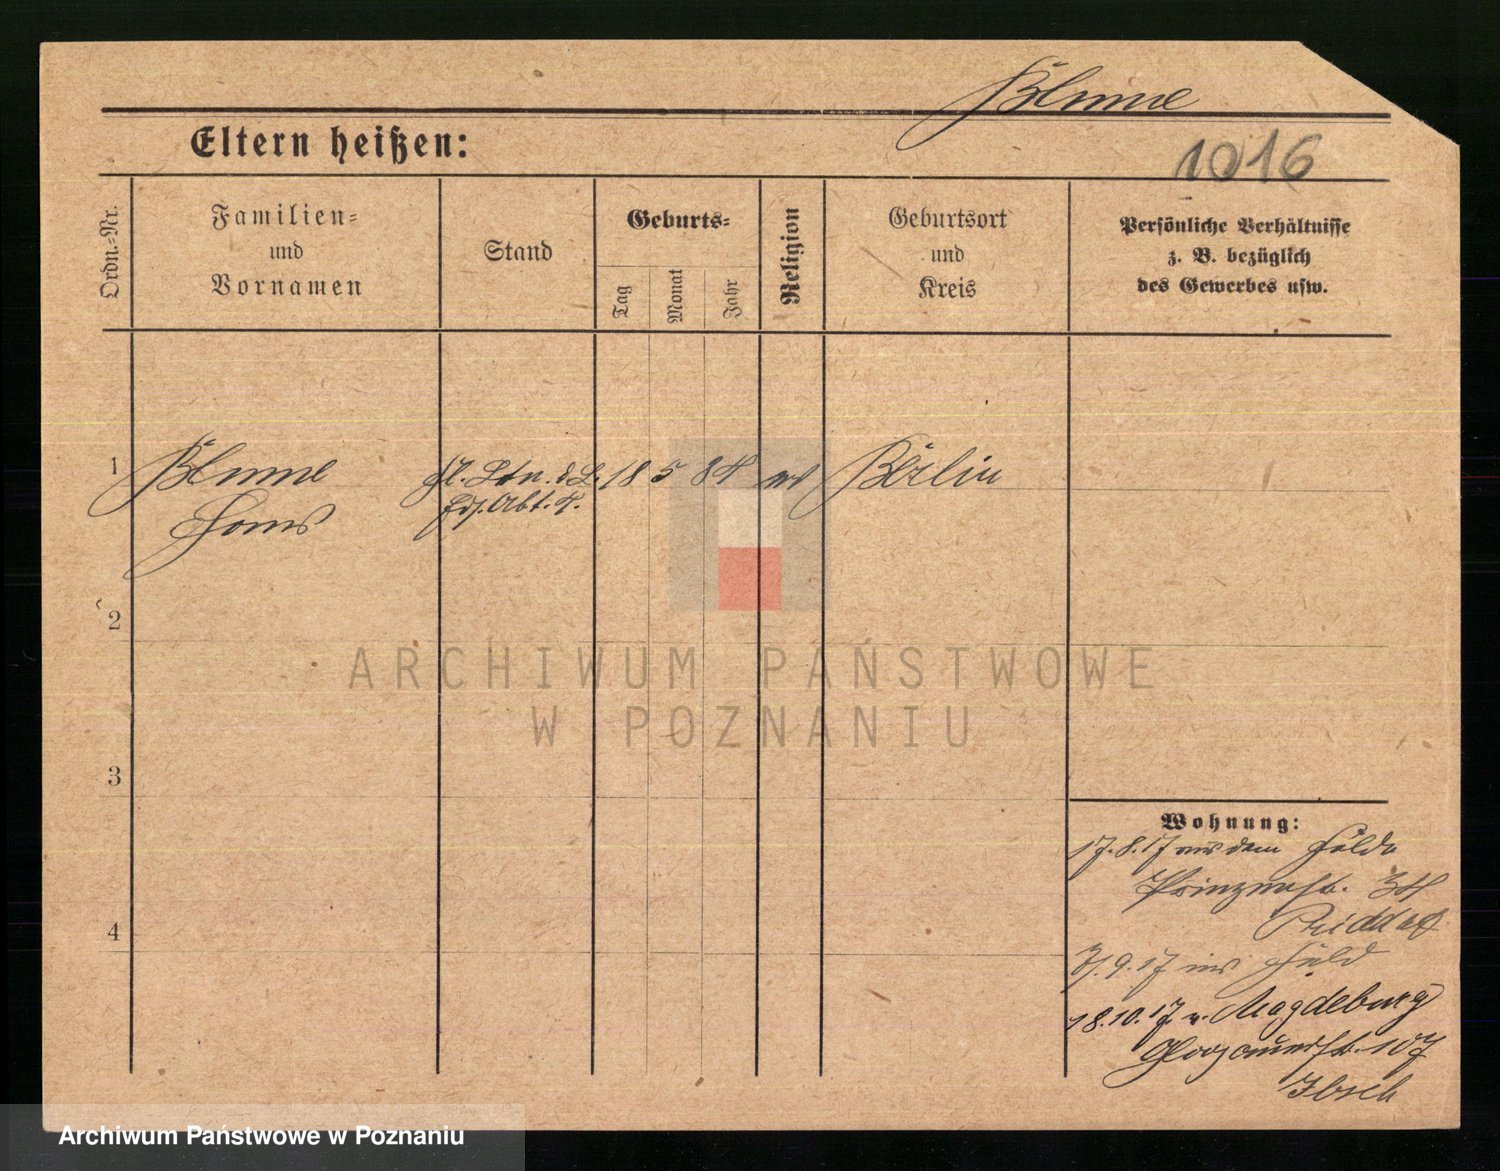 Blume
Eltern heißen:
1016
Ordn.-Nr.
Familien-
und
Vornamen
Stand
Geburts-
Tag
Monat
Jahr
Religion
Geburtsort
und
Kreis
Persönliche Verhältnisse
z. B. bezüglich
des Gewerbes usw.
1
Blume
Hans
Ltn. d L.
Abt. 4.
18 5 84
ev
Berlin
2
3
4
Wohnung:
17.8.17 aus dem Felde
Prinzenstr. 34
9.17 ins Feld
18.10.17 v. Magdeburg
Glogauerstr. 107
ARCHIWUM PAŃSTWOWE
W POZNANIU
Archiwum Państwowe w Poznaniu